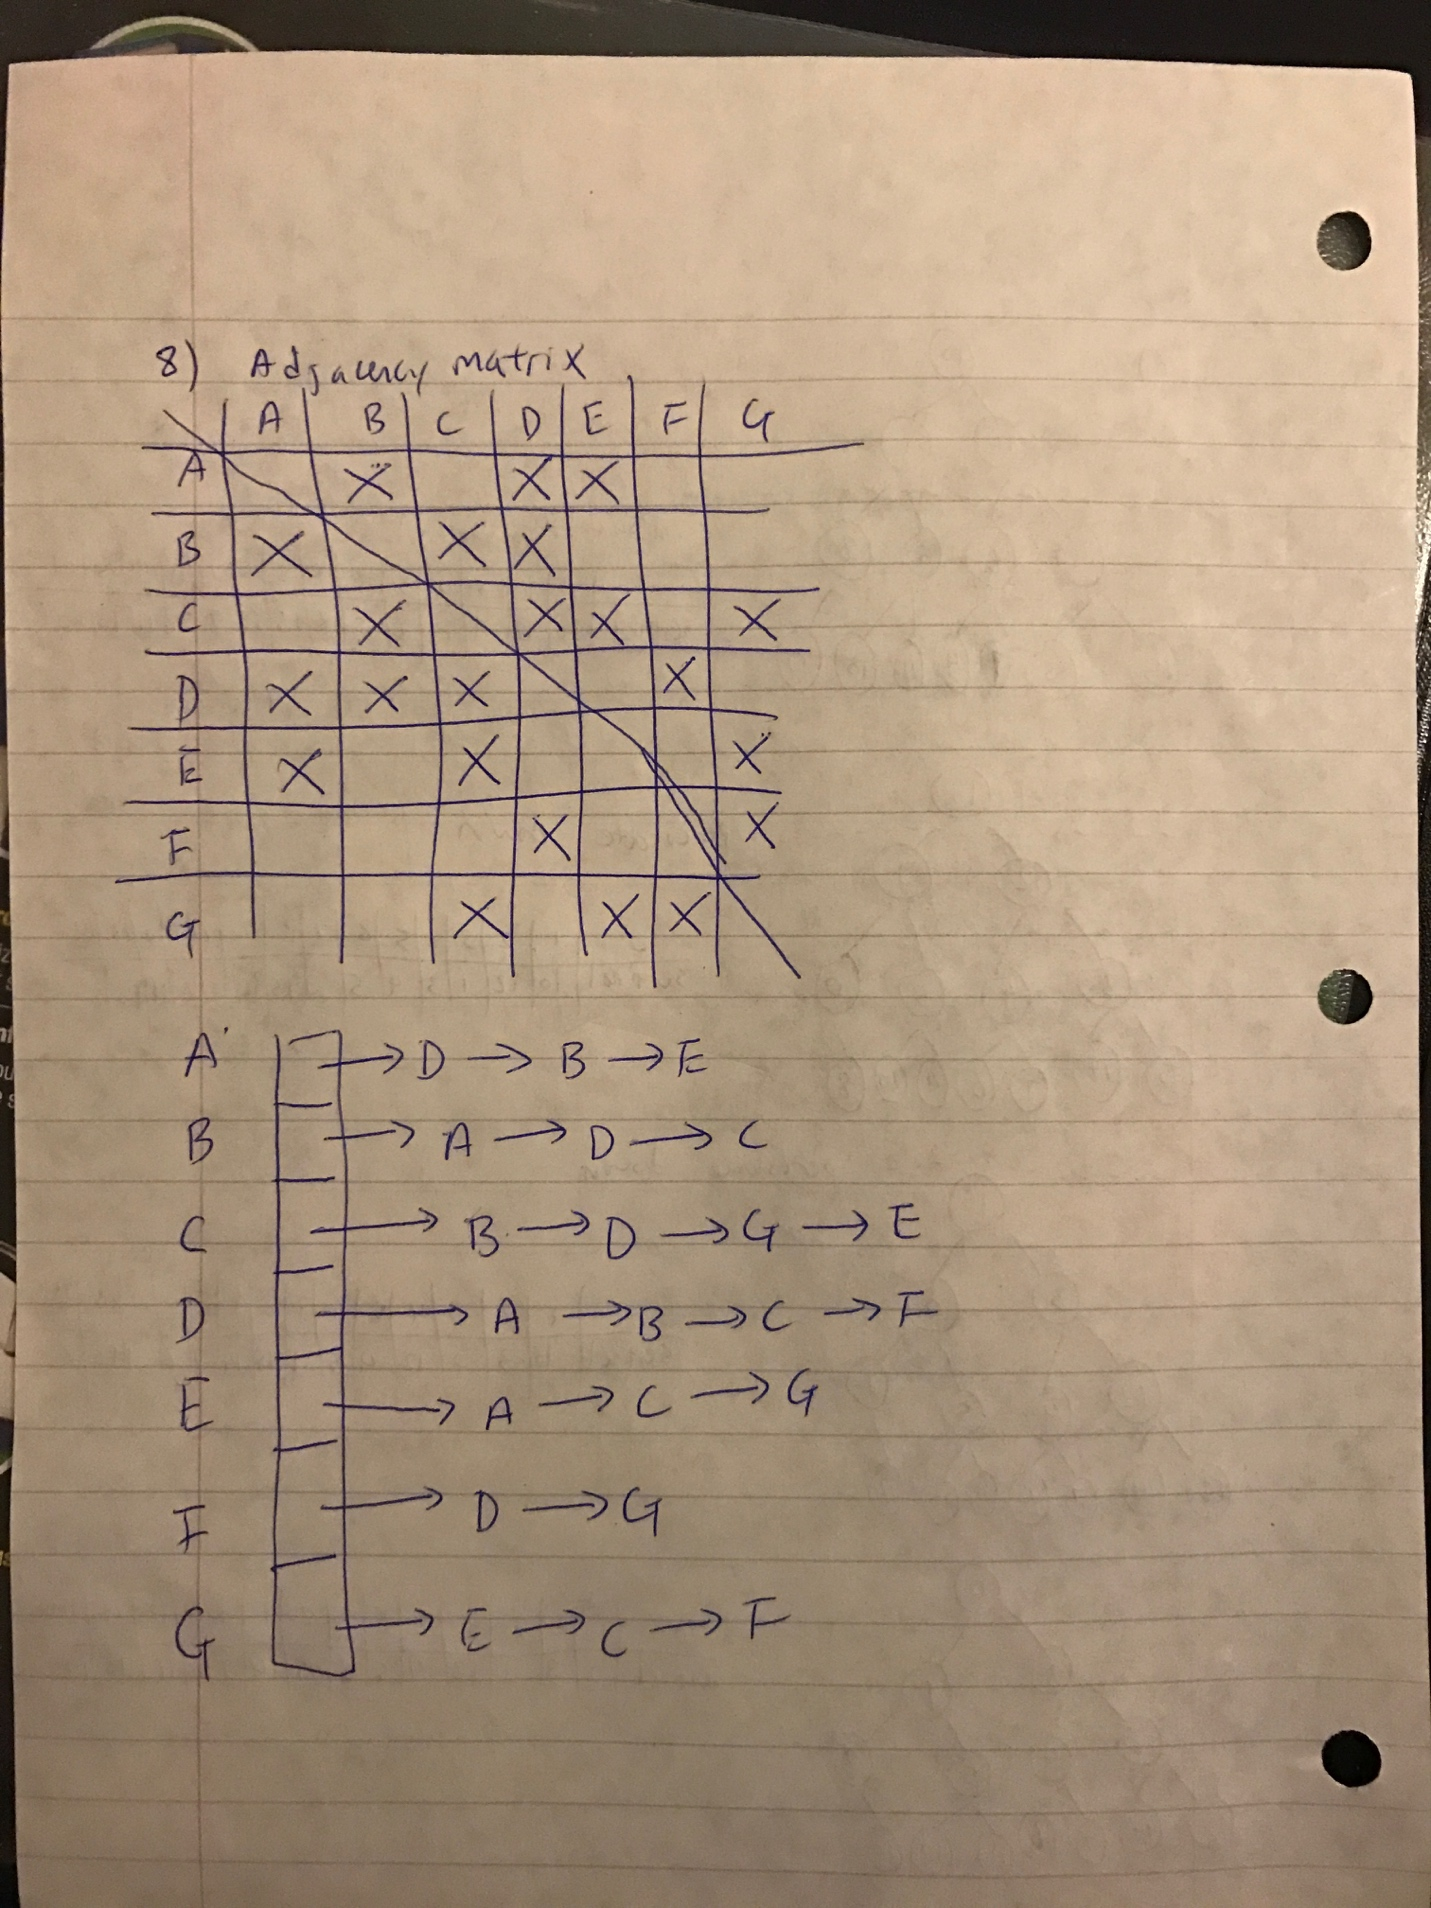 8) Adjacency matrix
A B C D E F G
A X X X
B X X X
C X X X X
D X X X X
E X X X
F X X
G X X X
A → D → B → E
B → A → D → C
C → B → D → G → E
D → A → B → C → F
E → A → C → G
F → D → G
G → E → C → F